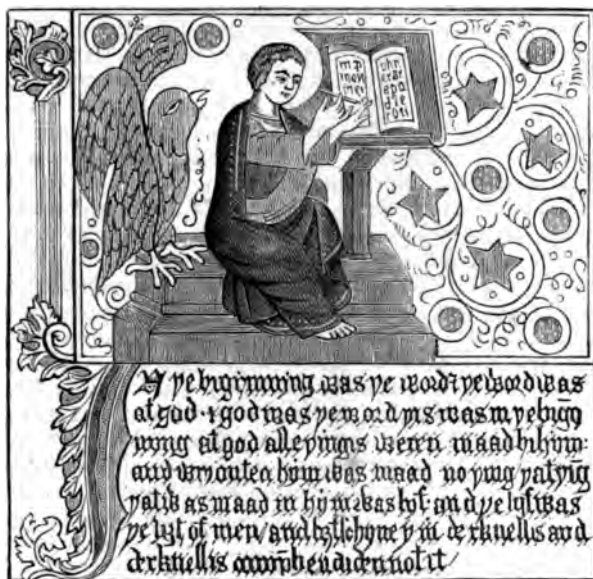 IN ye biginning was ye word ⁊ ye word was
at god · ⁊ god was ye word yis was in ye bigȳ
nyng at god alle yingis weren maad bi hym:
and wiyouten hym was maad no ying yat ying
yat is maad in hym was lyf · and ye lyf was
ye liȝt of men / and liȝt schyney in derknessis and
derknessis comprehendiden not it